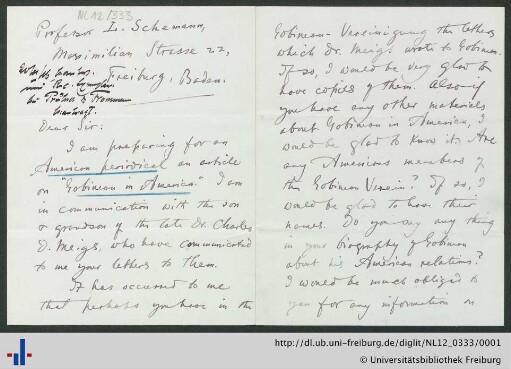 NL12/333
Professor L. Schemann,
Maximilian Strasse 22,
Freiburg, Baden.
Dear Sir:
I am preparing for an
American periodical an article
on "Gobineau in America." I am
in communication with the son
or grandson of the late Dr. Charles
D. Meigs, who have communicated
to me your letters to them.
It has occurred to me
that perhaps you have in the
Gobineau-Vereinigung the letters
which Dr. Meigs wrote to Gobineau.
If so, I would be very glad to
have copies of them. Also if
you have any other materials
about Gobineau in America, I
would be glad to know it. Are
any Americans members of
the Gobineau Verein? If so, I
would be glad to have their
names. Do you say any thing
in your biography of Gobineau
about his American relations?
I would be much obliged to
you for any information on
http://dl.ub.uni-freiburg.de/diglit/NL12_0333/0001
© Universitätsbibliothek Freiburg